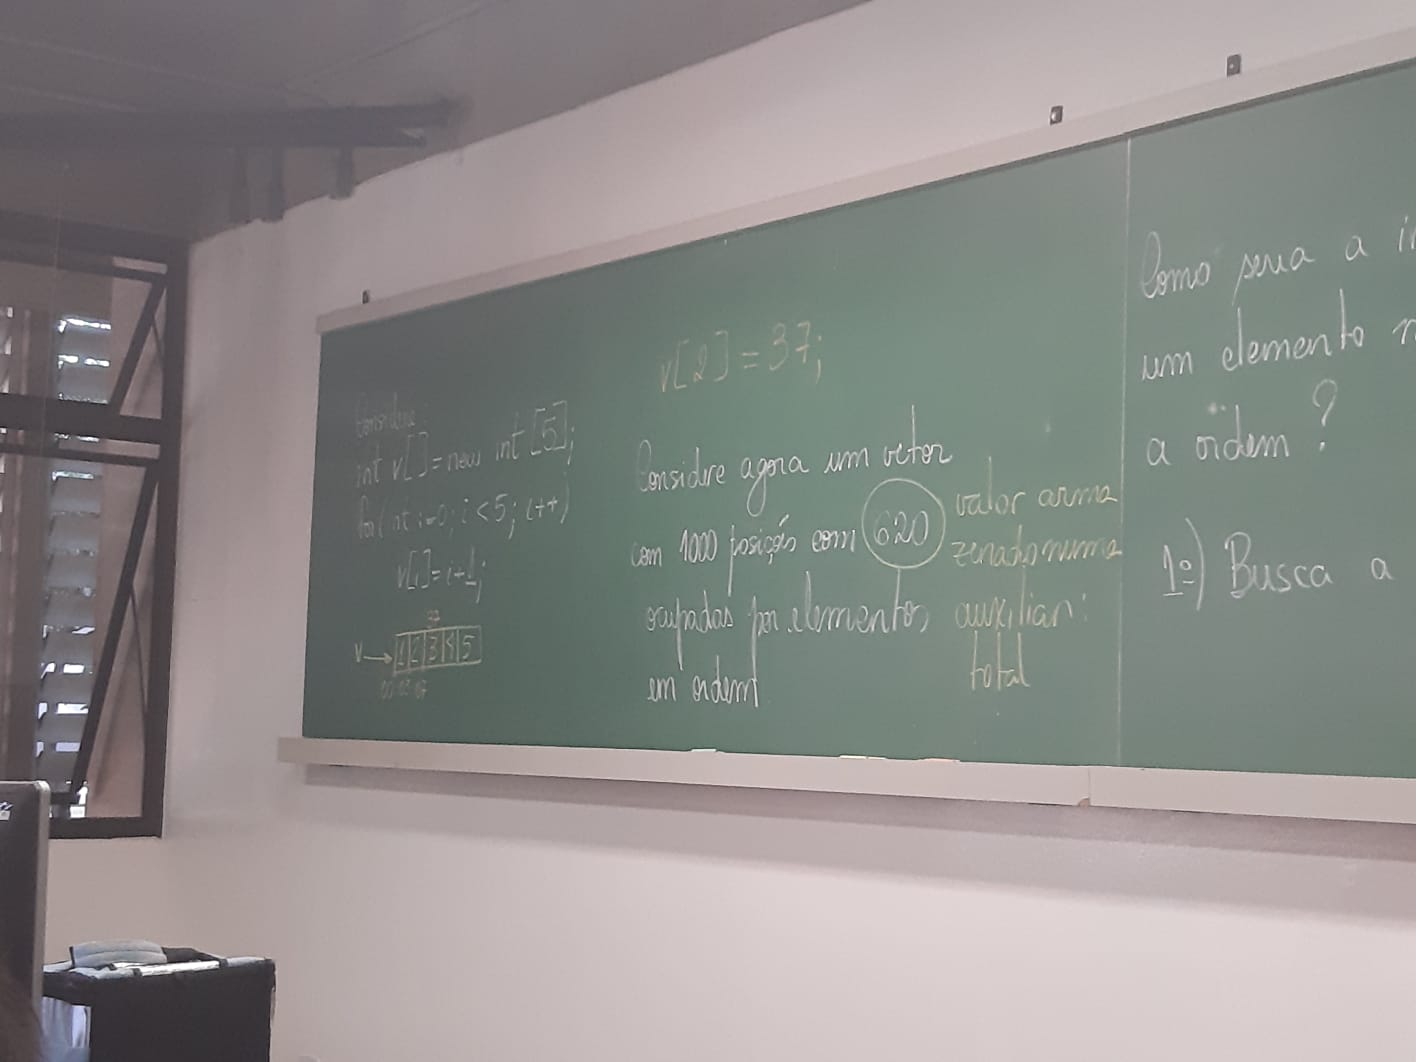 Considere
int v[]=new int[5];
for(int i=0; i<5; i++)
v[i]=i+1;
37
v→ 1 2 3 4 5
v[2]=37;
Considere agora um vetor
com 1000 posições com 620
ocupadas por elementos
em ordem
valor arma
zenado numa
auxiliar:
total
Como seria a
um elemento
a ordem?
1º) Busca a